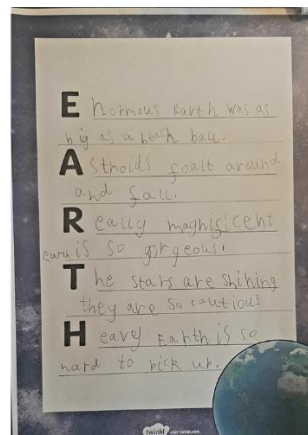 Enormous Earth was as
big as a beach ball.
Astroids foalt around
and fall.
Really magnificent
earu is so gorgeous.
The stars are shining
they are so cautious
Heavy Earth is so
hard to pick up.
twinkl